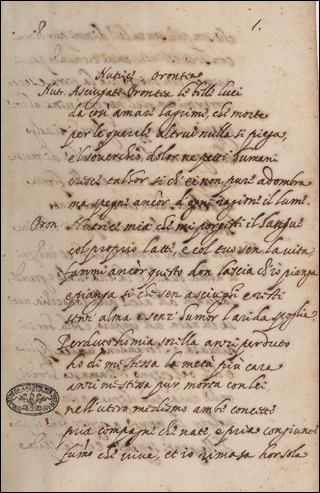 1.
Nutrice Orontea
Nutr. Asciugati Orontea le belle luci
da così amare lagrime, che morte
per le querele altrui nulla si piega,
e'l soverchio dolor ne petti humani
cresce talhor sì ch'ei non pur adombra
ma spegne ancor d'ogni ragione il lume.
Oron. Nutrice mia che mi porgesti il sangue
col proprio latte, e col tuo sen la vita
dammi ancor questo don lascia ch'io pianga
e pianga sì che sen asciughi e resti
senz'alma e senz'humor l'arida spoglia
Perduto ho mia sorella anzi perduto
ho di me stessa la metà più cara
anzi me stessa pur morta con lei
nell'utero medesmo ambe concette
pria compagne che nate, e pria congiunte
fummo che vive, et io rimasa hor sola